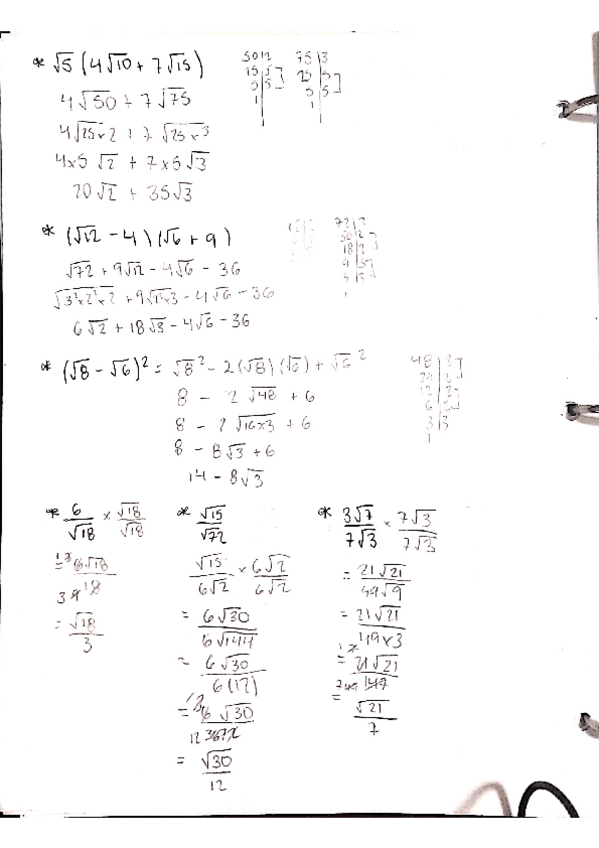 * √5 (4√10 + 7√15)
4√50 + 7√75
4√(25×2) + 7√(25×3)
4×5 √2 + 7×5√3
20√2 + 35√3
50|2
25|5
5|5
1|
75|3
25|5
5|5
1|
* (√12 - 4)(√6 + 9)
√72 + 9√12 - 4√6 - 36
√(3²×2²×2) + 9√(2²×3) - 4√6 - 36
6√2 + 18√3 - 4√6 - 36
72|2
36|2
18|2
9|3
3|3
1
* (√8 - √6)² = √8² - 2(√8)(√6) + √6²
8 - 2√48 + 6
8 - 2√(16×3) + 6
8 - 8√3 + 6
14 - 8√3
48|2
24|2
12|2
6|2
3|3
1
* 6/√18 × √18/√18
= 6√18/18
= √18/3
* √15/√72
√15/6√2 × 6√2/6√2
= 6√30/6√144
= 6√30/6(12)
= 6√30/72
= √30/12
* 3√7/7√3 × 7√3/7√3
= 21√21/49√9
= 21√21/49×3
= 21√21/147
= √21/7